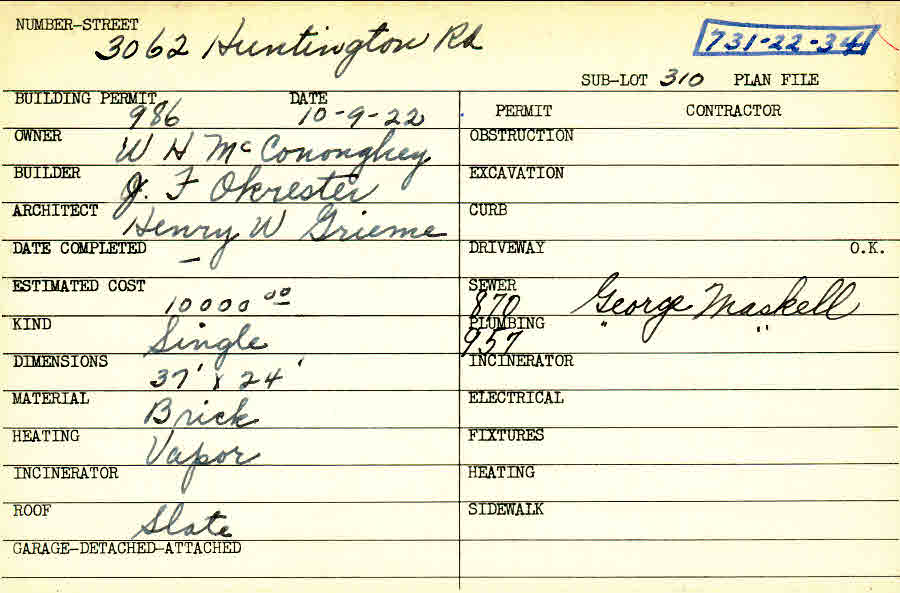 NUMBER-STREET
3062 Huntington Rd
731-22-34
SUB-LOT 310 PLAN FILE
BUILDING PERMIT 986 DATE 10-9-22
PERMIT CONTRACTOR
OWNER W H McConoughey
OBSTRUCTION
BUILDER J. F Okrester
EXCAVATION
ARCHITECT Henry W Grieme
CURB
DATE COMPLETED —
DRIVEWAY O.K.
ESTIMATED COST 10000 00
SEWER 870 George Maskell
KIND Single
PLUMBING 957 " "
DIMENSIONS 37' x 24'
INCINERATOR
MATERIAL Brick
ELECTRICAL
HEATING Vapor
FIXTURES
INCINERATOR
HEATING
ROOF Slate
SIDEWALK
GARAGE-DETACHED-ATTACHED